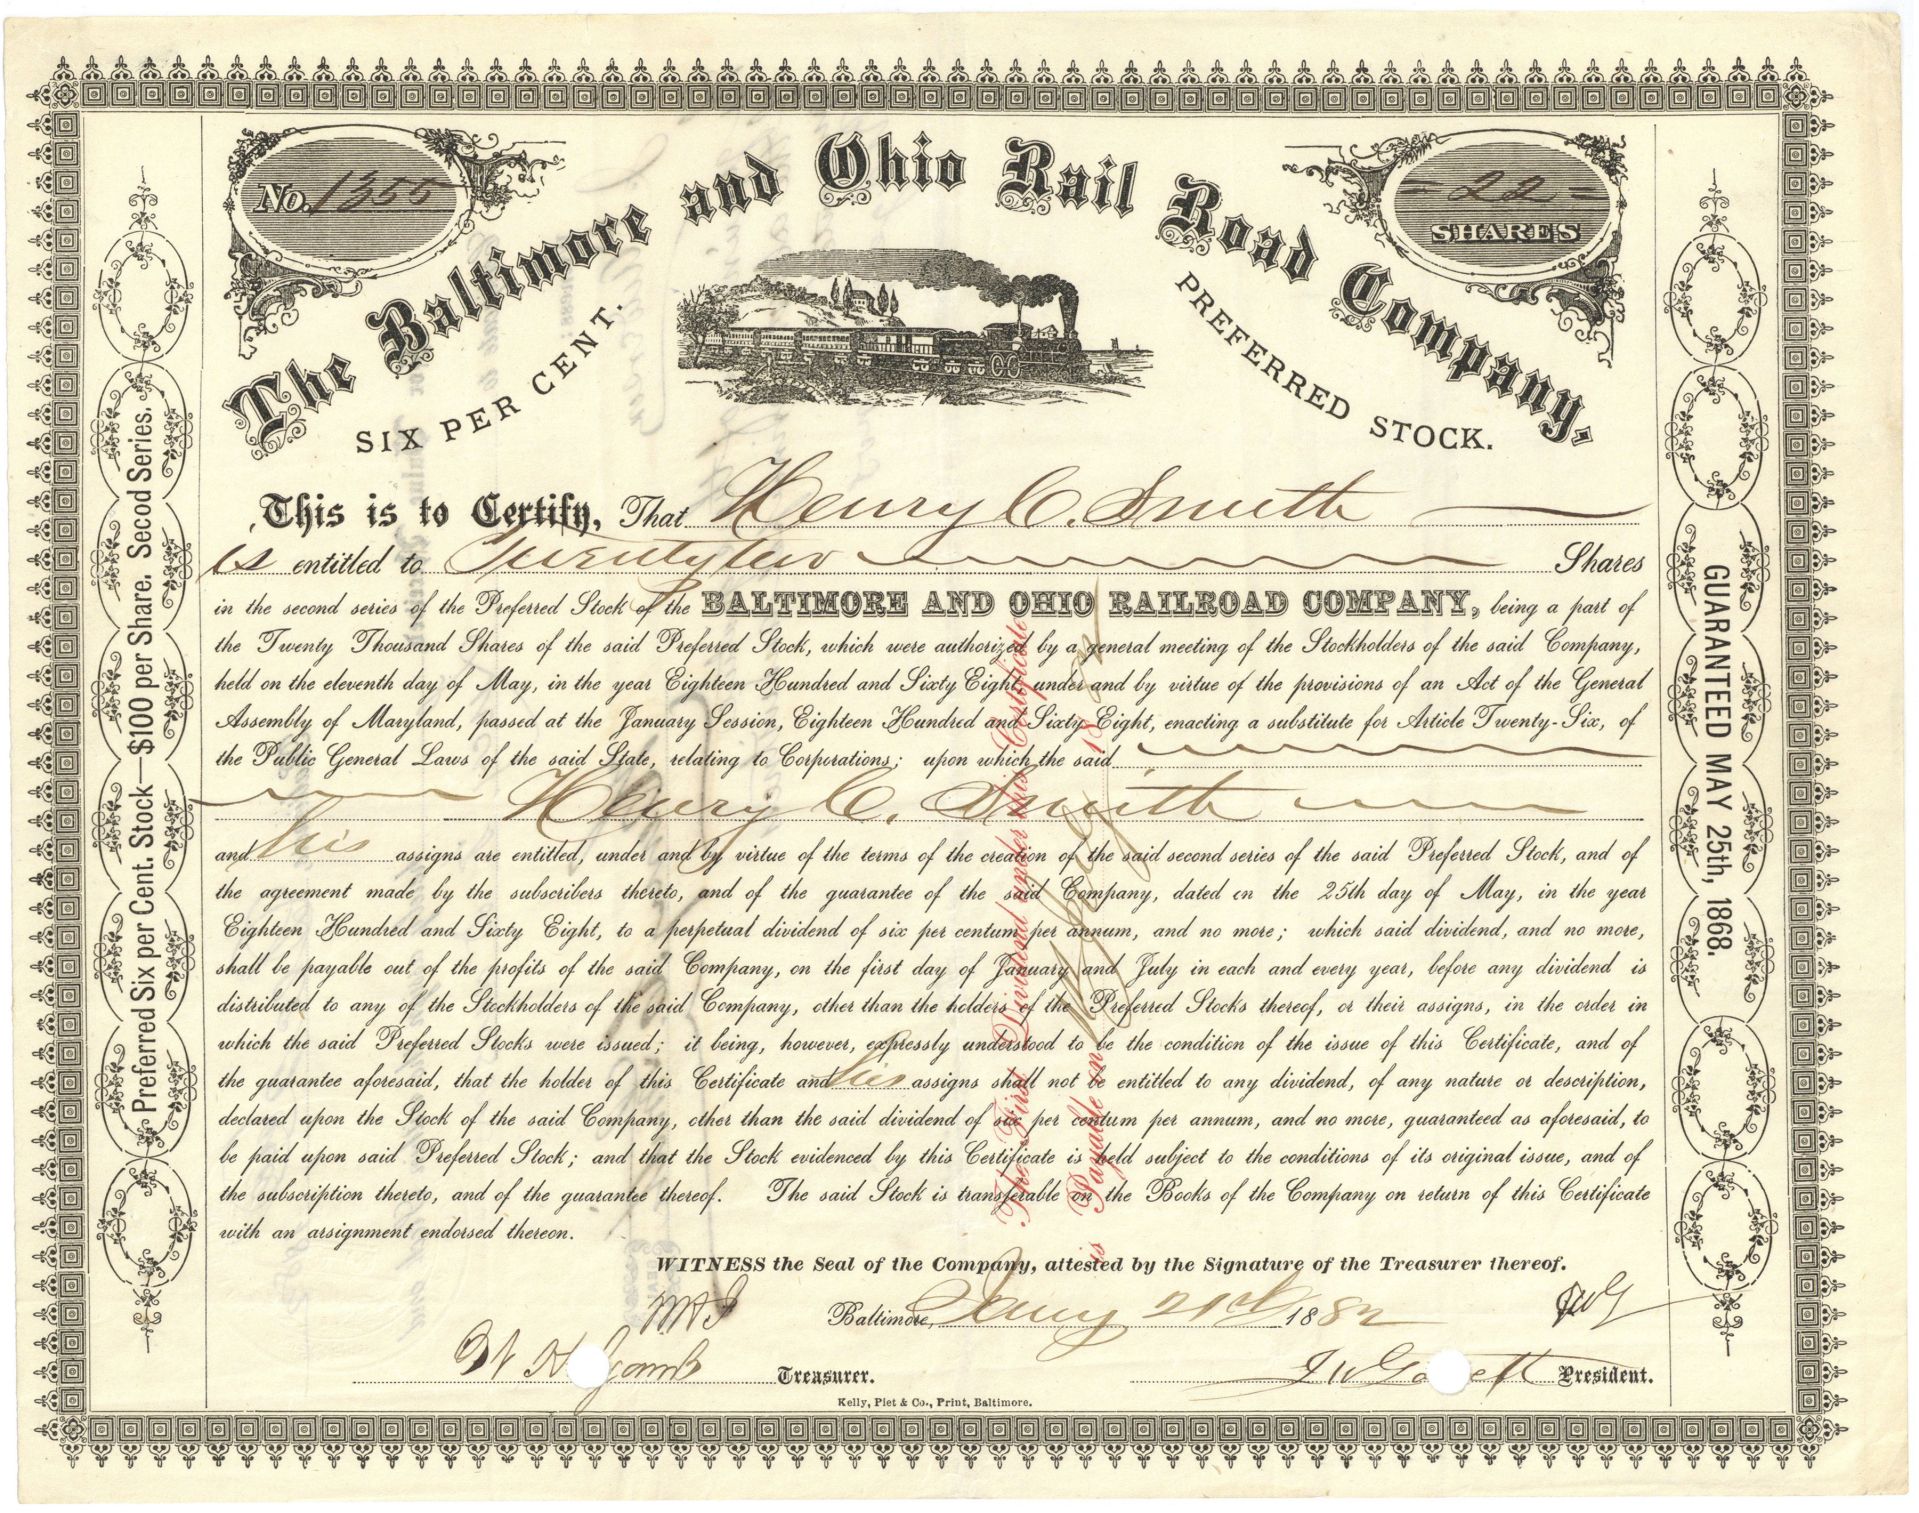 No. 1355
= 22 =
SHARES
The Baltimore and Ohio Rail Road Company,
SIX PER CENT.
PREFERRED STOCK.
This is to Certify, That Henry C. Smith
is entitled to Twenty two Shares
in the second series of the Preferred Stock of the BALTIMORE AND OHIO RAILROAD COMPANY, being a part of
the Twenty Thousand Shares of the said Preferred Stock, which were authorized by a general meeting of the Stockholders of the said Company,
held on the eleventh day of May, in the year Eighteen Hundred and Sixty Eight, under and by virtue of the provisions of an Act of the General
Assembly of Maryland, passed at the January Session, Eighteen Hundred and Sixty Eight, enacting a substitute for Article Twenty-Six, of
the Public General Laws of the said State, relating to Corporations; upon which the said
Henry C. Smith
and his assigns are entitled, under and by virtue of the terms of the creation of the said second series of the said Preferred Stock, and of
the agreement made by the subscribers thereto, and of the guarantee of the said Company, dated on the 25th day of May, in the year
Eighteen Hundred and Sixty Eight, to a perpetual dividend of six per centum per annum, and no more; which said dividend, and no more,
shall be payable out of the profits of the said Company, on the first day of January and July in each and every year, before any dividend is
distributed to any of the Stockholders of the said Company, other than the holders of the Preferred Stocks thereof, or their assigns, in the order in
which the said Preferred Stocks were issued; it being, however, expressly understood to be the condition of the issue of this Certificate, and of
the guarantee aforesaid, that the holder of this Certificate and his assigns shall not be entitled to any dividend, of any nature or description,
declared upon the Stock of the said Company, other than the said dividend of six per centum per annum, and no more, guaranteed as aforesaid, to
be paid upon said Preferred Stock; and that the Stock evidenced by this Certificate is held subject to the conditions of its original issue, and of
the subscription thereto, and of the guarantee thereof. The said Stock is transferable on the Books of the Company on return of this Certificate
with an assignment endorsed thereon.
WITNESS the Seal of the Company, attested by the Signature of the Treasurer thereof.
Baltimore, Jany 21st 1882
JWG
W H Ijams Treasurer.
J W Garrett President.
Kelly, Piet & Co., Print, Baltimore.
Preferred Six per Cent. Stock—$100 per Share. Second Series.
GUARANTEED MAY 25th, 1868.
The First Dividend under this Certificate
is Payable on